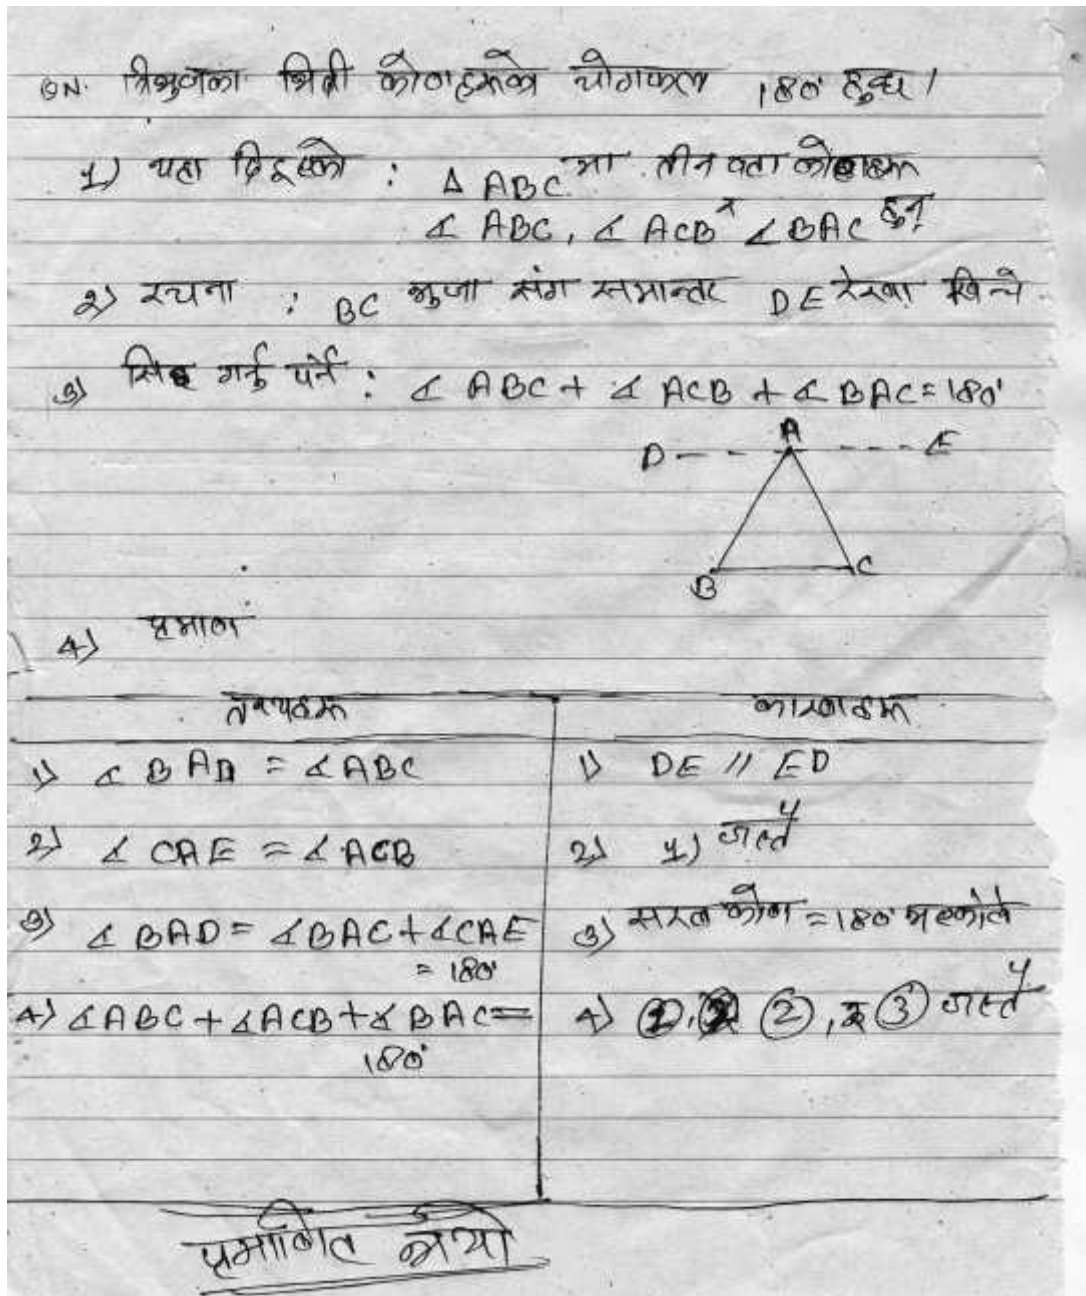 QN. त्रिभुजका भित्री कोणहरूको योगफल 180° हुन्छ।
1) यहा दिइएको : Δ ABC मा तीन वटा कोणहरू
∡ ABC, ∡ ACB र ∠BAC हुन्
2) रचना : BC भुजा संग समान्तर DE रेखा खिचे
3) सिद्ध गर्नु पर्ने : ∡ ABC + ∡ ACB + ∡ BAC = 180°
A
D E
B C
4) प्रमाण
तथ्यहरू कारणहरू
1) ∡ BAD = ∡ABC 1) DE // ED
2) ∡ CAE = ∡ ACB 2) 1) जस्तै
3) ∡ BAD = ∡BAC + ∡CAE 3) सरल कोण = 180° भएकोले
= 180°
4) ∡ABC + ∡ACB + ∡ BAC = 4) ①, ②, र ③ जस्तै
180°
प्रमाणित भयो